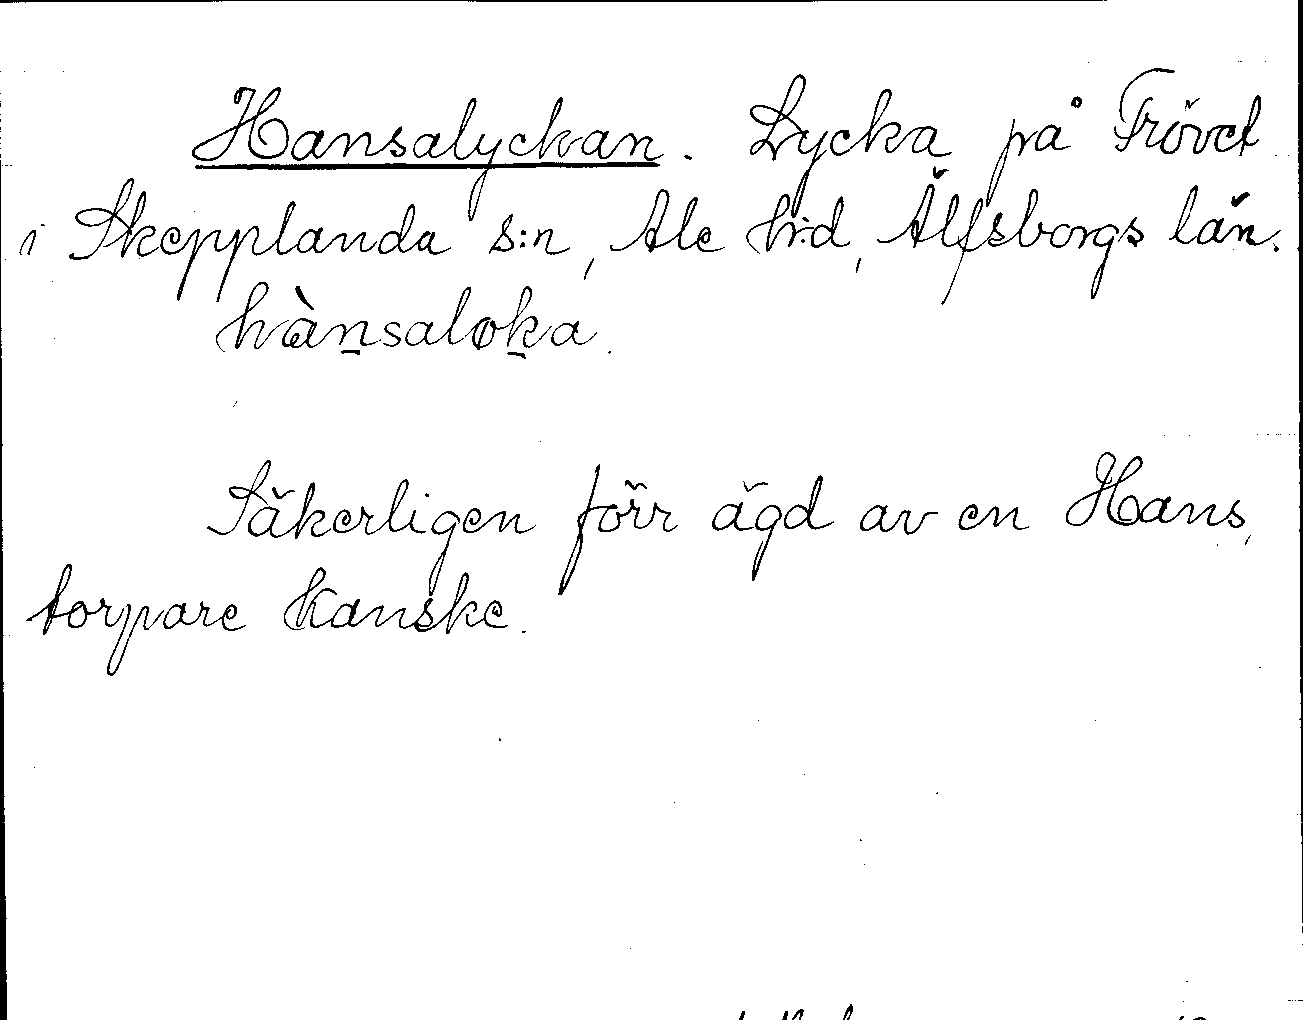 Hansalyckan. Lycka på Frövet
i Skepplanda s:n, Ale h:d, Älfsborgs län.
hànsaløka.
Säkerligen förr ägd av en Hans,
torpare kanske.